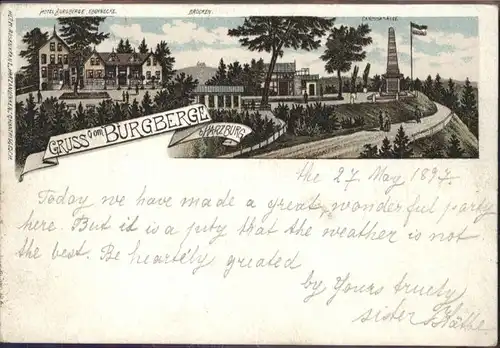 HOTEL BURGBERGE
BROCKEN.
GRUSS v. BURGBERGE
b/HARZBURG.
the 27 May 1897.
Today we have made a great wonderful party
here. But it is a pity that the weather is not
the best. Be heartily greated
by Yours truely
sister Käthe